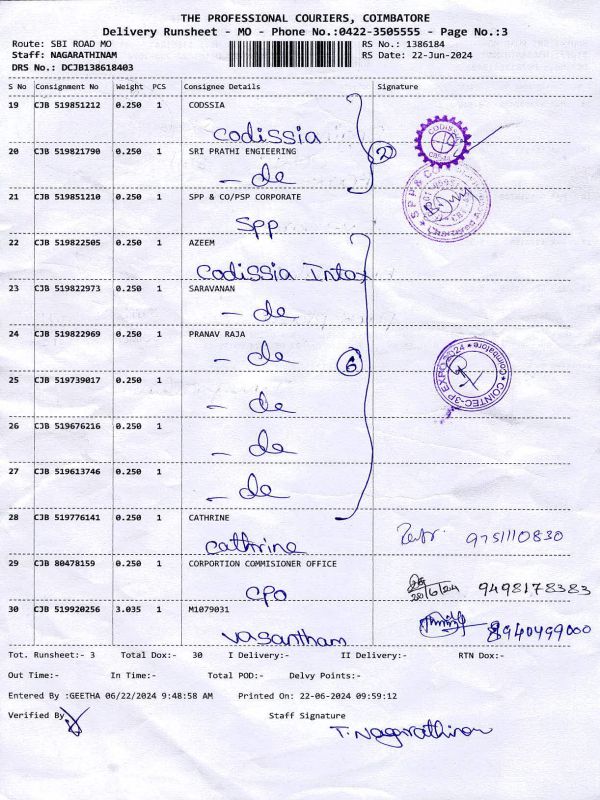 THE PROFESSIONAL COURIERS, COIMBATORE
Delivery Runsheet - MO - Phone No.:0422-3505555 - Page No.:3
Route: SBI ROAD MO RS No.: 1386184
Staff: NAGARATHINAM RS Date: 22-Jun-2024
DRS No.: DCJB138618403
S No Consignment No Weight PCS Consignee Details Signature
19 CJB 519851212 0.250 1 CODSSIA
Codissia
CODISSIA
20 CJB 519821790 0.250 1 SRI PRATHI ENGIEERING
- do
2
21 CJB 519851210 0.250 1 SPP & CO/PSP CORPORATE
SPP
SPP & CO
22 CJB 519822505 0.250 1 AZEEM
Codissia Intex
23 CJB 519822973 0.250 1 SARAVANAN
- do
24 CJB 519822969 0.250 1 PRANAV RAJA
- do
6
COINTEC-3P EXPO 2024 * Coimbatore *
25 CJB 519739017 0.250 1
- do
26 CJB 519676216 0.250 1
- do
27 CJB 519613746 0.250 1
- do
28 CJB 519776141 0.250 1 CATHRINE
Cathrine 9751110830
29 CJB 80478159 0.250 1 CORPORTION COMMISIONER OFFICE
CPO 9498178383
30 CJB 519920256 3.035 1 M1079031
Vasantham 8940499000
Tot. Runsheet:- 3 Total Dox:- 30 I Delivery:- II Delivery:- RTN Dox:-
Out Time:- In Time:- Total POD:- Delvy Points:-
Entered By :GEETHA 06/22/2024 9:48:58 AM Printed On: 22-06-2024 09:59:12
Verified By Staff Signature
T. Nagarathinam